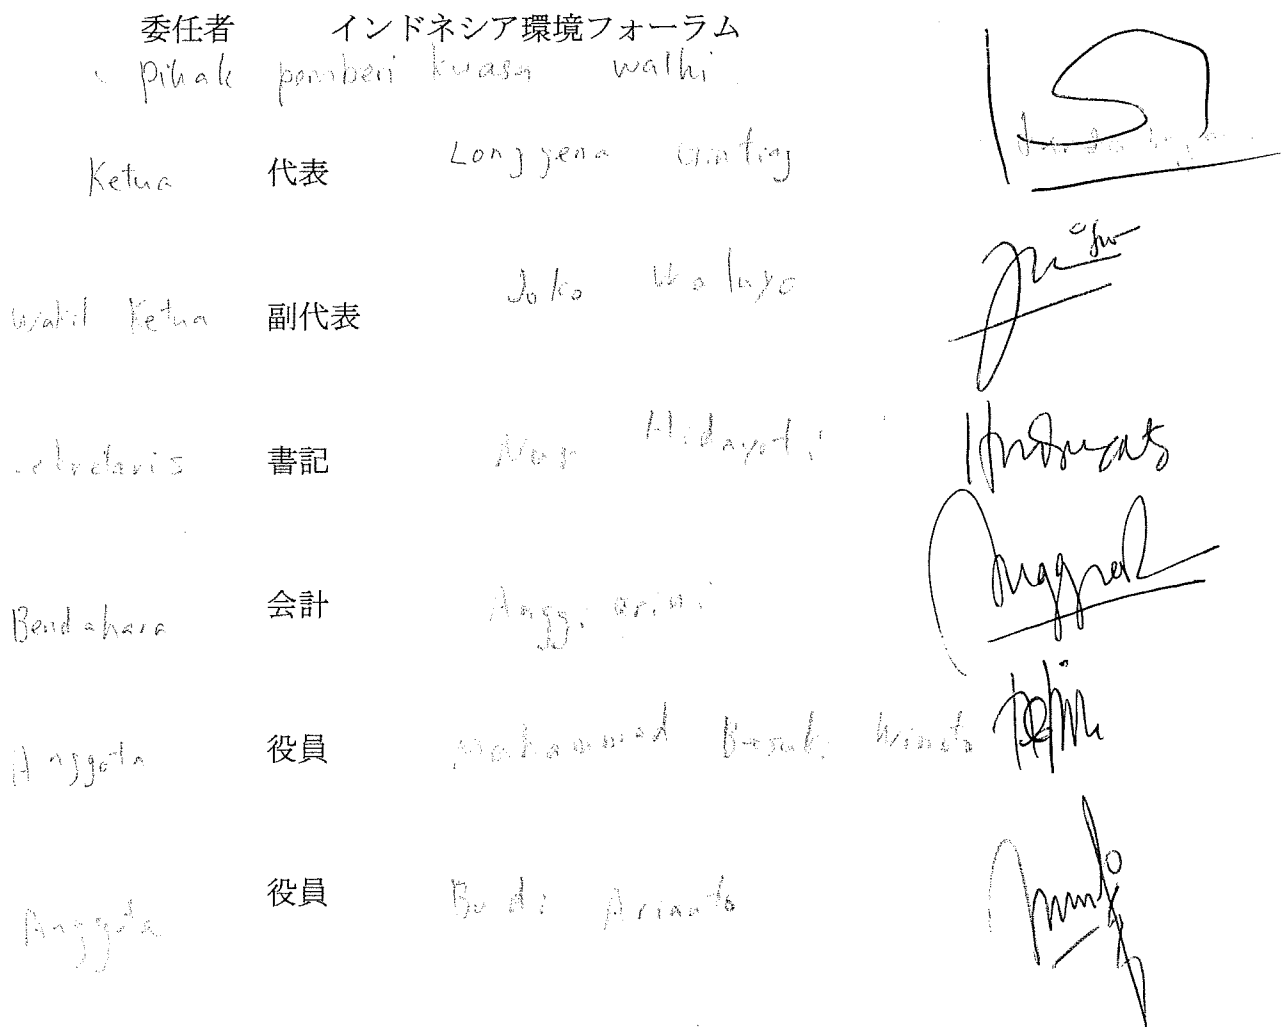 委任者 インドネシア環境フォーラム
Pihak pemberi kuasa walhi
Ketua 代表 Longgena Ginting
Wakil Ketua 副代表 Joko Waluyo
書記 Nur Hidayati
Bendahara 会計 Anggi arini
Anggota 役員 Mohammad Basuki Winoto
Anggota 役員 Budi Arianto